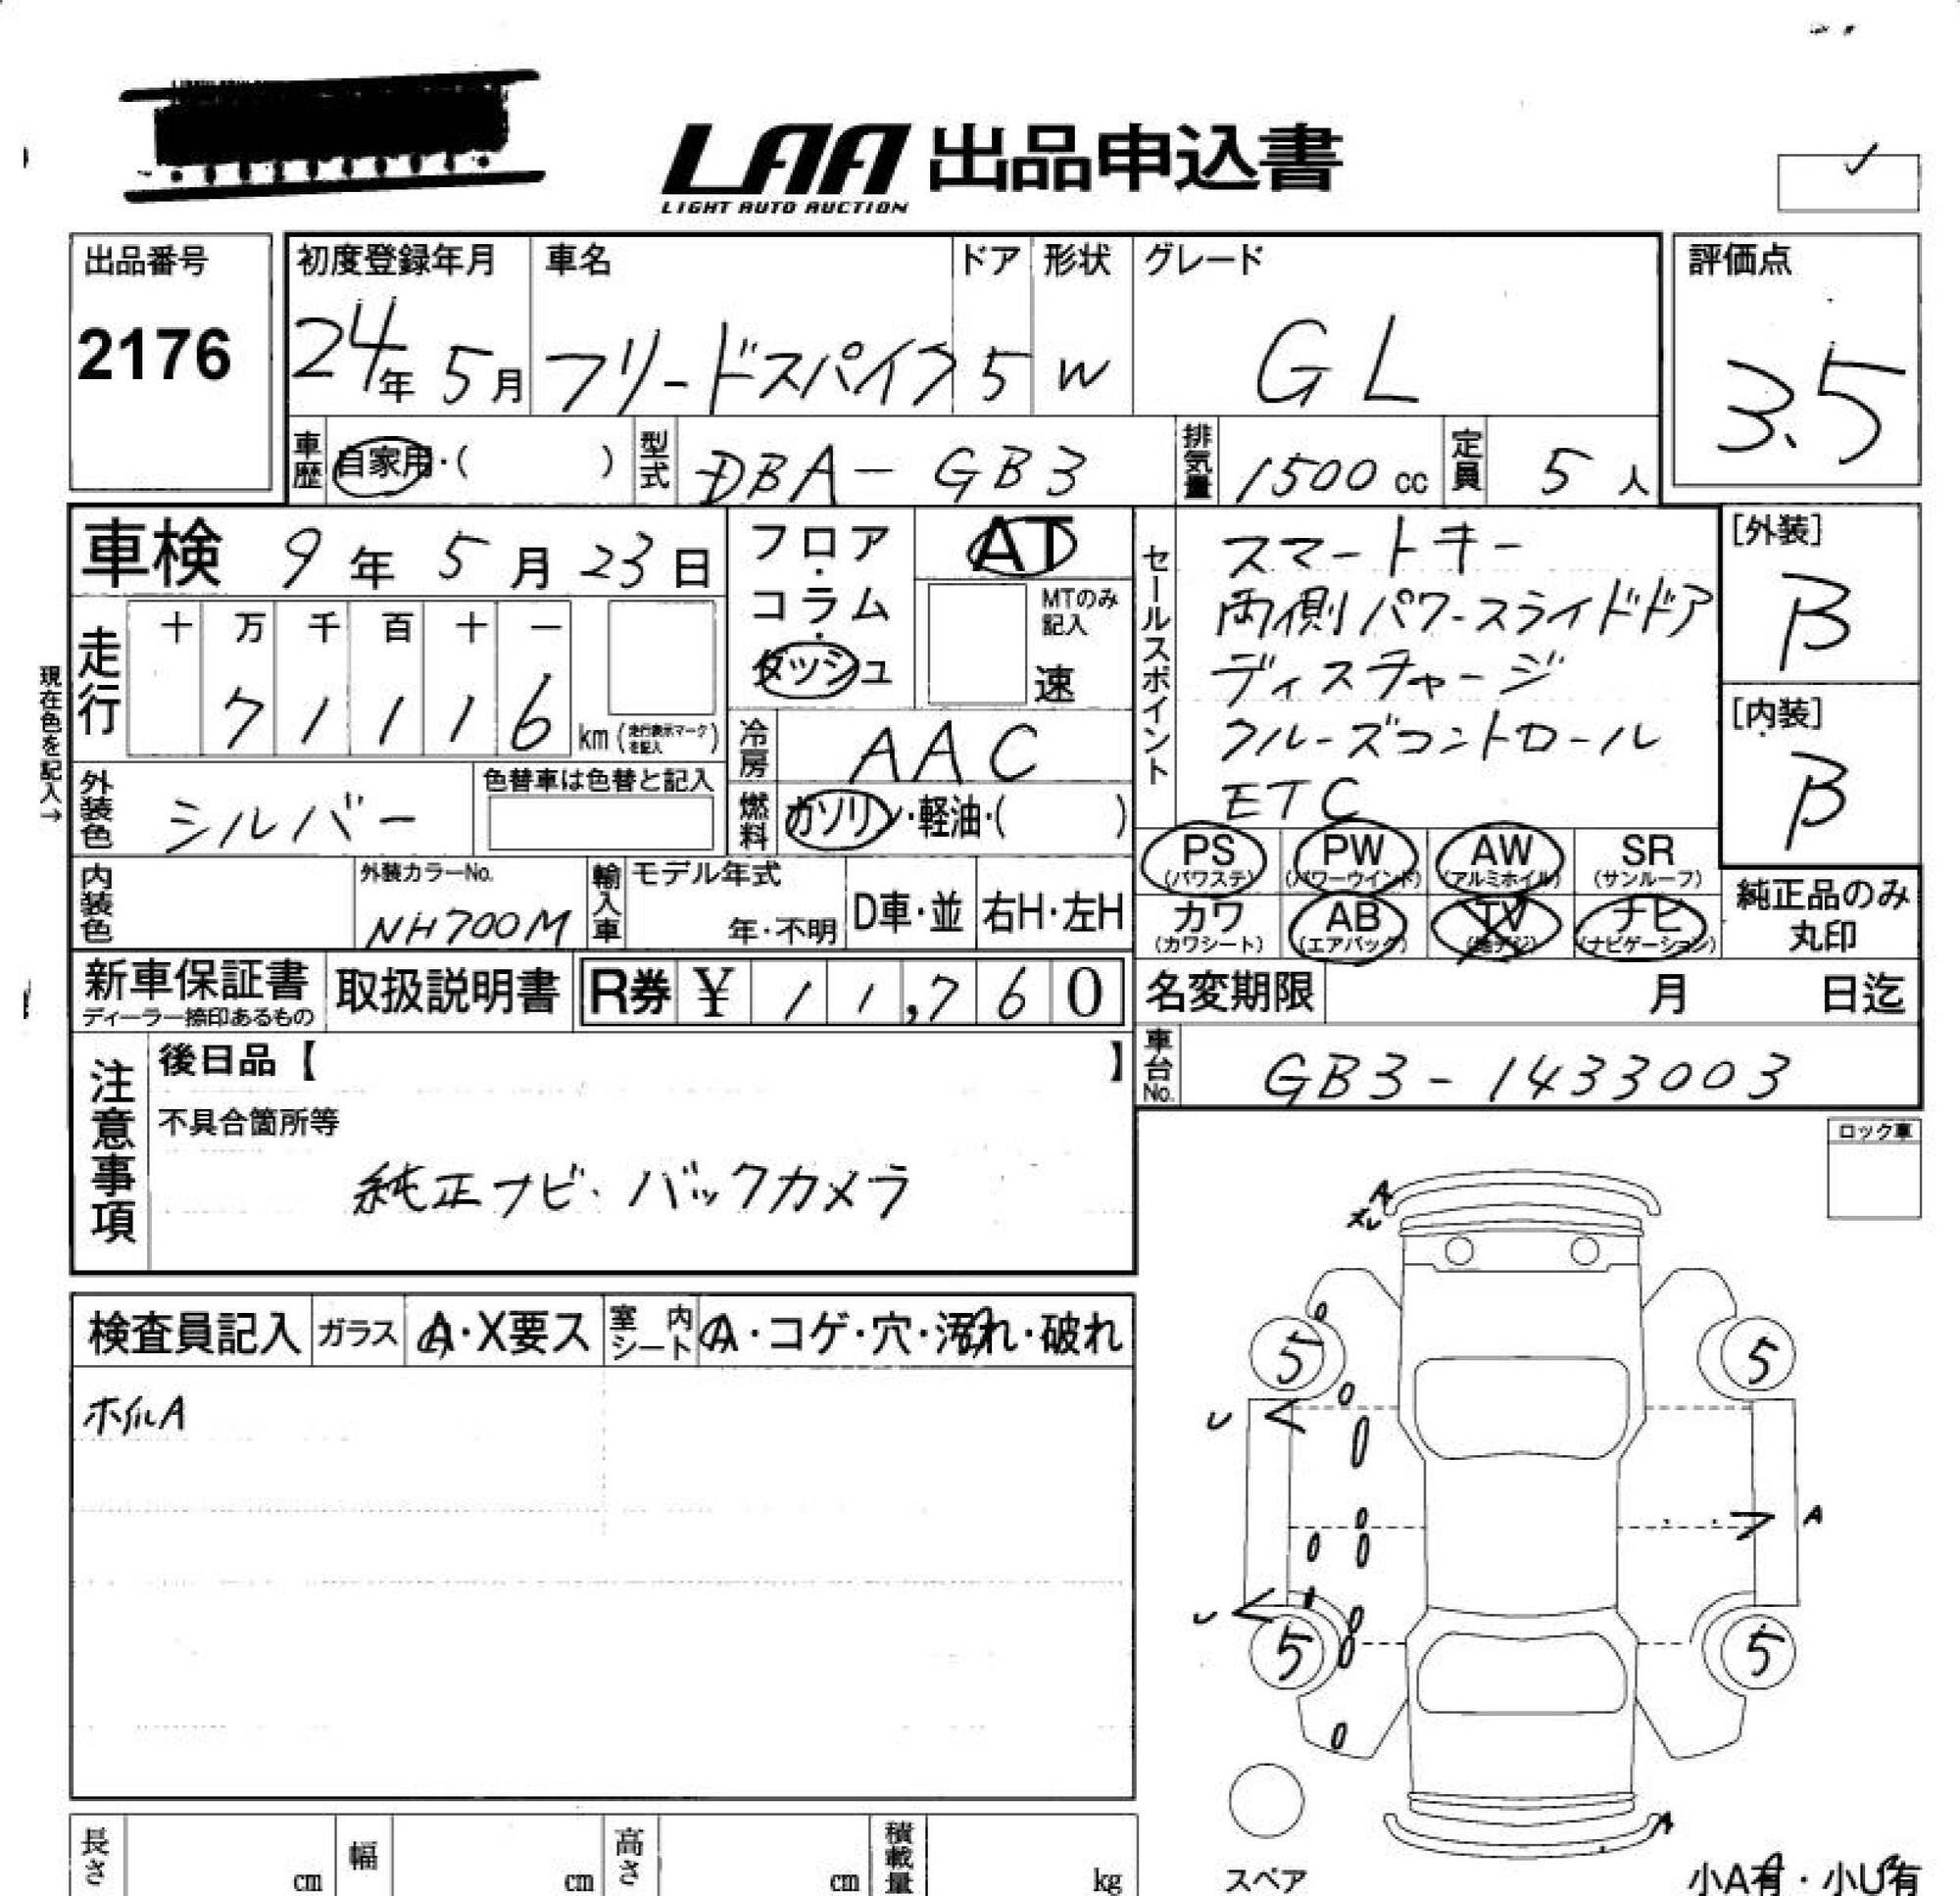 LAA 出品申込書
LIGHT AUTO AUCTION
出品番号
2176
初度登録年月
24年 5月
車名
フリードスパイク
ドア
5
形状
W
グレード
GL
評価点
3.5
車歴
自家用・( )
型式
DBA-GB3
排気量
1500 cc
定員
5 人
車検 9年 5月 23日
フロア・コラム・ダッシュ
AT
MTのみ記入
速
現在色を記入→
走行
十 万 千 百 十 一
7 1 1 1 6 km (走行表示マークを記入)
冷房
AAC
外装色
シルバー
色替車は色替と記入
燃料
ガソリン・軽油・( )
セールスポイント
スマートキー
両側パワースライドドア
ディスチャージ
クルーズコントロール
ETC
[外装]
B
[内装]
B
PS (パワステ) PW (パワーウインド) AW (アルミホイル) SR (サンルーフ)
カワ (カワシート) AB (エアバック) TV (地デジ) ナビ (ナビゲーション)
純正品のみ
丸印
内装色
外装カラーNo.
NH700M
輸入車
モデル年式
年・不明
D車・並
右H・左H
新車保証書
ディーラー捺印あるもの
取扱説明書
R券 ¥ 1 1,7 6 0
名変期限 月 日迄
車台No.
GB3-1433003
注意事項
後日品【 】
不具合箇所等
純正ナビ・バックカメラ
ロック車
検査員記入
ガラス A・X要ス
室内シート A・コゲ・穴・汚れ・破れ
ホイルA
A
5
5
U
A
U
5
5
A
スペア
小A有・小U有
長さ cm
幅 cm
高さ cm
積載量 kg